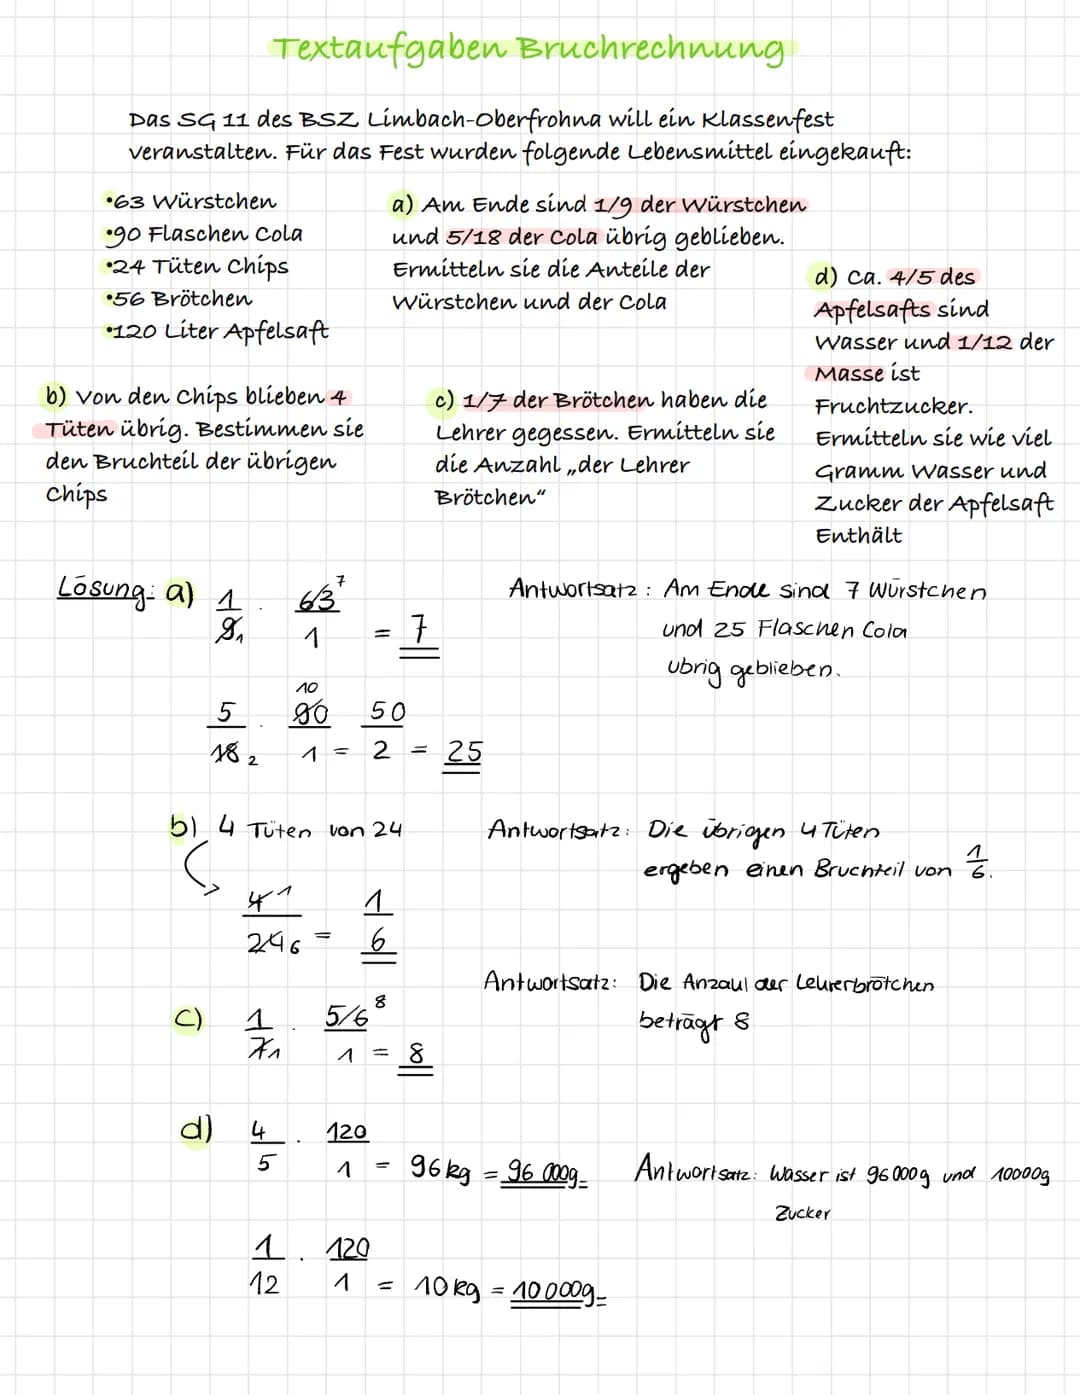 Textaufgaben Bruchrechnung
Das SG 11 des BSZ Limbach-Oberfrohna will ein Klassenfest
veranstalten. Für das Fest wurden folgende Lebensmittel eingekauft:
•63 Würstchen
•90 Flaschen Cola
•24 Tüten Chips
•56 Brötchen
•120 Liter Apfelsaft
a) Am Ende sind 1/9 der Würstchen
und 5/18 der Cola übrig geblieben.
Ermitteln sie die Anteile der
Würstchen und der Cola
b) Von den Chips blieben 4
Tüten übrig. Bestimmen sie
den Bruchteil der übrigen
Chips
c) 1/7 der Brötchen haben die
Lehrer gegessen. Ermitteln sie
die Anzahl „der Lehrer
Brötchen“
d) Ca. 4/5 des
Apfelsafts sind
Wasser und 1/12 der
Masse ist
Fruchtzucker.
Ermitteln sie wie viel
Gramm Wasser und
Zucker der Apfelsaft
Enthält
Lösung: a) 1/9 1 · 63 7/1 = 7
Antwortsatz: Am Ende sind 7 Würstchen
und 25 Flaschen Cola
übrig geblieben.
5/18 2 · 90 10/1 = 50/2 = 25
b) 4 Tüten von 24
4 1/24 6 = 1/6
Antwortsatz: Die übrigen 4 Tüten
ergeben einen Bruchteil von 1/6.
c) 1/7 1 · 56 8/1 = 8
Antwortsatz: Die Anzahl der Lehrerbrötchen
beträgt 8
d) 4/5 · 120/1 = 96 kg = 96 000g
Antwortsatz: Wasser ist 96 000g und 10000g
Zucker
1/12 · 120/1 = 10 kg = 10 000g